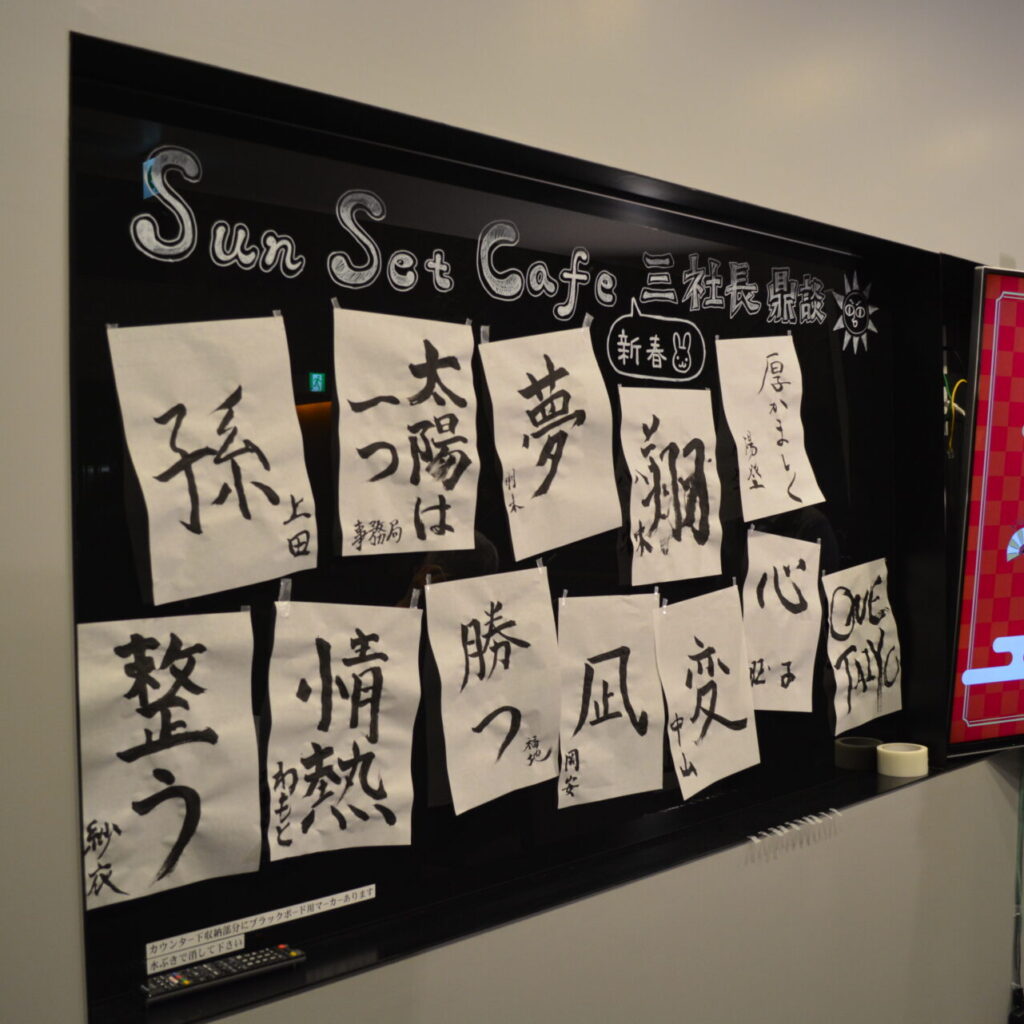 Sun Set Cafe 三社長 鼎談
新春
孫
上田
太陽は
一つ
事務局
夢
翔
厚かましく
整う
紗衣
情熱
ねもと
勝つ
福地
凪
岡安
変
中山
心
ONE
TAIYO
カウンター下収納部分にブラックボード用マーカーあります
水ぶきで消して下さい